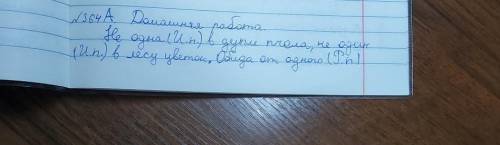 №364А. Домашняя работа.
Не одна (И.п) в дупле пчела, не один
(И.п) в лесу цветок. Обида от одного (Р.п)